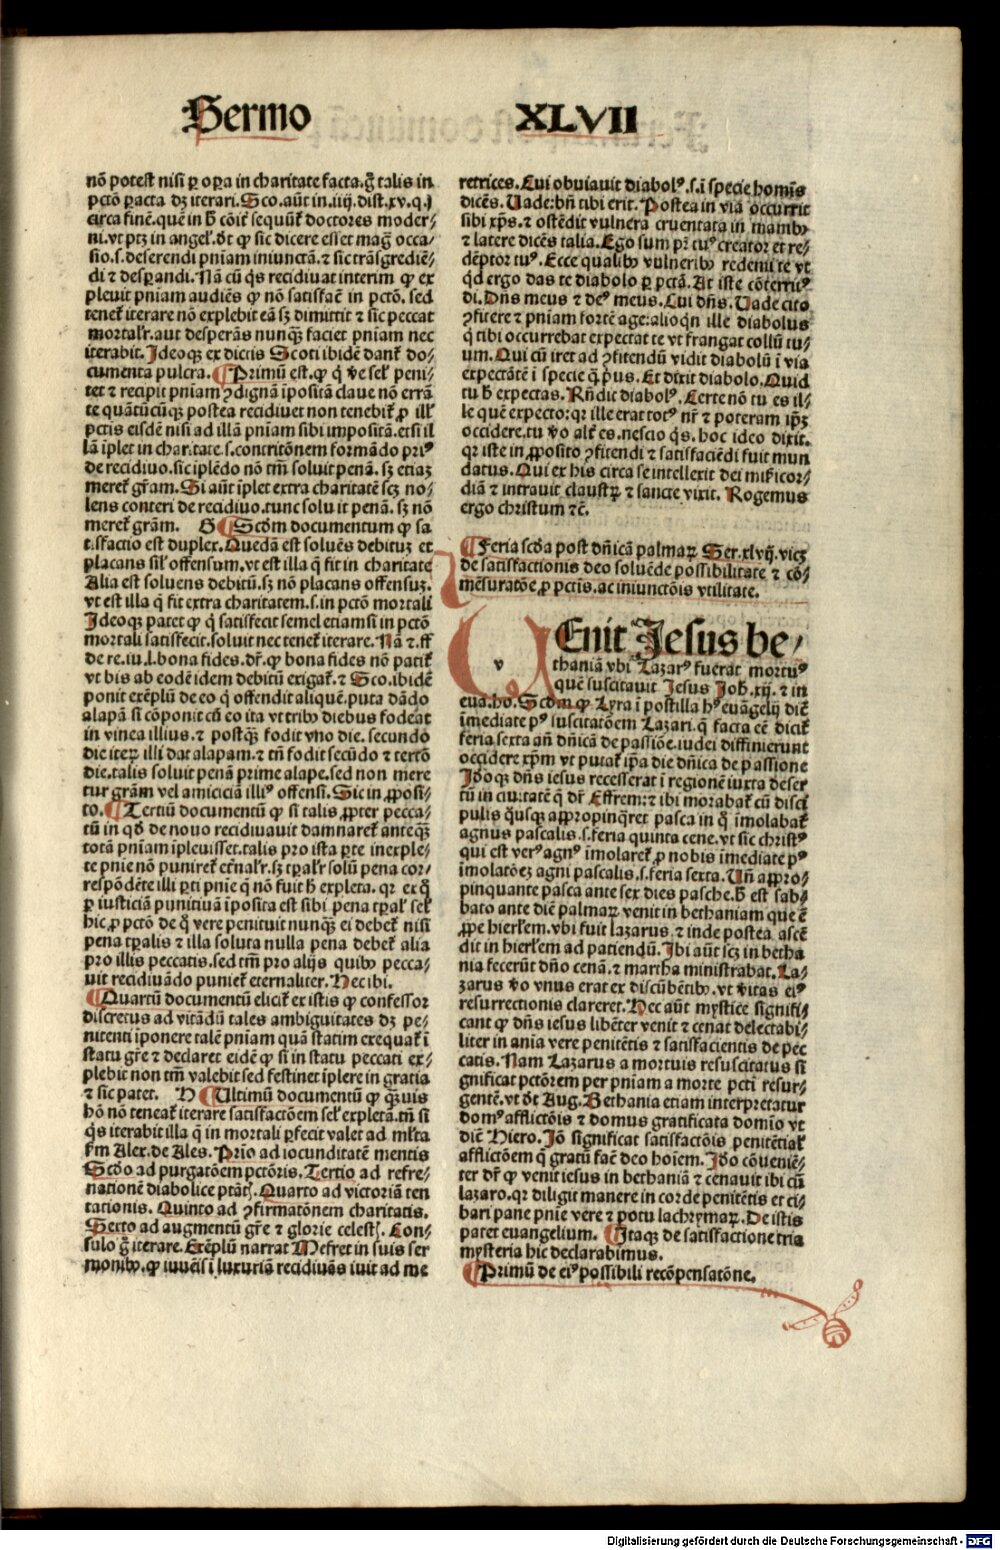 Sermo XLVII
nō potest nisi ꝑ oꝑa in charitate facta.g̃ talis in
pctō ꝑacta dꝫ iterari. Sco.aūt in.iiij.dist.xv.q.j
circa finē.quē in h̄ cōit̃ sequūt̃ doctores moder⸗
ni.vt ptꝫ in angel̕.d̄t ꝙ sic dicere esset mag̃ occa⸗
sio.s.deserendi pniam iniunctā.⁊ sic trāsgrediē⸗
di ⁊ desꝑandi. Nā cū q̄s recidiuat interim ꝙ ex
pleuit pniam audiēs ꝙ nō satisfacē in pctō. sed
tenet̃ iterare nō explebit eā sꝫ dimittit ⁊ sic peccat
mortalr̕.aut desperās nunqꝫ faciet pniam nec
iterabit. Ideoqꝫ ex dictis Scoti ibidē dant̃ do⸗
cumenta pulcra. ¶ Primū est.ꝙ q̇ ṽe sel̕ peni⸗
tet ⁊ recipit pniam ꝯdignā īpositā claue nō errā
te quātūcūqꝫ postea recidiuet non tenebit̃ ꝓ ill̕
pctis eisdē nisi ad illā pniam sibi impositā.etsi il
lā īplet in charitate.s.contritōnem formādo priꝰ
de recidiuo.sic iplēdo nō tm̄ soluit penā. sꝫ etiaꝫ
meret̃ gr̄am. Si aūt īplet extra charitatē scꝫ no⸗
lens conteri de recidiuo.tunc soluit penā. sꝫ nō
meret̃ grām. G ¶ Scd̄m documentum ꝙ sa
tisfactio est duplex. Quedā est soluēs debituꝫ et
placans sil̕ offensum. vt est illa q̄ fit in charitate
Alia est soluens debitū.sꝫ nō placans offensuꝫ.
vt est illa q̄ fit extra charitatem.s.in pctō mortali
Ideoqꝫ patet ꝙ q̇ satisfecit semel etiamsi in pctō
mortali satisfecit.soluit nec tenet̃ iterare. Nā ⁊.ff
de re.iu.l.bona fides.dr̄.ꝙ bona fides nō patit̃
vt bis ab eodē idem debitū exigat̃.⁊ Sco.ibidē
ponit exēplū de eo q̇ offendit aliquē.puta dādo
alapā si cōponit cū eo ita vt tribꝰ diebus fodeat
in vinea illius.⁊ postqꝫ fodit vno die. secundo
die iteꝝ illi dat alapam.⁊ tn̄ fodit secūdo ⁊ tertō
die.talis soluit penā prime alape.sed non mere
tur grām vel amiciciā illiꝰ offensi. Sic in ꝓposi⸗
to. ¶ Tertiū documentū ꝙ si talis ꝓpter pecca⸗
tū in qd̄ de nouo recidiuauit damnaret̃ anteqꝫ
totā pniam īpleuisset.talis pro ista ꝑte inexple⸗
te pnie nō puniret̃ et̃nalr̕.sꝫ tꝑalr̕ solū pena cor⸗
respōdēte illi ꝑti pnie q̄ nō fuit h̄ expleta. qr ex q̊
ꝑ iusticiā punitiuā īposita est sibi pena tꝑal̕ sel̕
hic.ꝓ pctō de q̊ vere penituit nunqꝫ ei debet̃ nisi
pena tꝑalis ⁊ illa soluta nulla pena debet̃ alia
pro illis peccatis.sed tm̄ pro alijs quibꝰ pecca⸗
uit recidiuādo puniet̃ eternaliter. Hec ibi.
¶ Quartū documentū elicit̃ ex istis ꝙ confessor
discretus ad vitādū tales ambiguitates dꝫ pe⸗
nitenti īponere talē pniam quā statim exequat̃ ī
statu gr̄e ⁊ declaret eidē ꝙ si in statu peccati ex⸗
plebit non tm̄ valebit sed festinet īplere in gratia
⁊ sic patet. H ¶ Ultimū documentū ꝙ qꝫuis
hō nō teneat̃ iterare satisfactōem sel̕ expletā.tn̄ si
q̇s iterabit illa q̄ in mortali ꝑfecit valet ad ml̕ta
km̄ Alex.de Ales. Prio ad iocunditatē mentis
Scd̄o ad purgatōem pctōris. Tertio ad refre⸗
nationē diabolice ptātꝭ. Quarto ad victoriā ten
tationis. Quinto ad ꝯfirmatōnem charitatis.
Sexto ad augmentū gr̄e ⁊ glorie celestꝭ. Con⸗
sulo g̃ iterare. Exēplū narrat Mefret in suis ser
monibꝰ.ꝙ iuuēis ī luxuriā recidiuās iuit ad me
retrices. Cui obuiauit diabolꝰ.s.ī specie homīs
dicēs. Uade:bn̄ tibi erit. Postea in via occurrit
sibi xp̄s.⁊ ostēdit vulnera cruentata in manibꝰ
⁊ latere dicēs talia. Ego sum pr̄ tuꝰ creator et re⸗
dēptor tuꝰ. Ecce qualibꝰ vulneribꝰ redemi te vt
qd ergo das te diabolo ꝑ pctā. At iste cōterritꝰ
di. Dn̄s meus ⁊ deꝰ meus. Cui dn̄s. Uade cito
ꝯfitere ⁊ pniam fortē age:alioqn̄ ille diabolus
q̇ tibi occurrebat expectat te vt frangat collū tu⸗
um. Qui cū iret ad ꝯfitendū vidit diabolū ī via
expectātē ī specie q̄ pꝰus. Et dixit diabolo. Quid
tu h̄ expectas. Rn̄dit diabolꝰ. Certe nō tu es il⸗
le quē expecto:qr ille erat totꝰ nr̄ ⁊ poteram ip̄ꝫ
occidere.tu ṽo alt̃ es.nescio q̇s. hoc ideo dixit.
qr iste in ꝓposito ꝯfitendi ⁊ satisfaciēdi fuit mun
datus. Qui ex his circa se intellexit dei mīcicor⸗
diā ⁊ intrauit claustꝝ ⁊ sancte vixit. Rogemus
ergo christum ⁊c̄.
¶ Feria scd̄a post dn̄icā palmaꝝ Ser.xlvij.vicꝫ
de satisfactionis deo soluēde possibilitate ⁊ cō⸗
mēsuratōe,ꝓ pctis.ac iniunctōis vtilitate.
UEnit Jesus be⸗
v
thaniā vbi Lazarꝰ fuerat mortuꝰ
quē suscitauit Jesus Joh̄.xij.⁊ in
eua.ho. Scd̄m ꝙ Lyra ī postilla hꝰ euāgelij dic̄
īmediate pꝰ suscitatōem Lazari.q̄ facta eē dicit̃
feria sexta añ dn̄icā de passiōe.iudei diffinierunt
occidere xp̄m vt putat̃ ip̄a die dn̄ica de passione
Idoqꝫ dn̄s iesus recesserat ī regionē iuxta deser
tū in ciuitatē q̄ dr̄ Effrem:⁊ ibi morabat̃ cū disci
pulis q̊usqꝫ appropinq̄ret pasca in q̊ imolabat̃
agnus pascalis.s.feria quinta cene.vt sic christꝰ
qui est verꝰ agnꝰ īmolaret̃ ꝓ nobis īmediate pꝰ
īmolatōeꝫ agni pascalis.s.feria sexta. Un̄ appro⸗
pinquante pasca ante sex dies pasche.h̄ est sab⸗
bato ante diē palmaꝝ venit in bethaniam que ē
ꝓpe hierl̕em.vbi fuit lazarus.⁊ inde postea ascē
dit in hierl̕em ad patiendū. Ibi aūt scꝫ in betha
nia fecerūt dn̄o cenā.⁊ martha ministrabat. La⸗
zarus ṽo vnus erat ex discūbētibꝰ.vt v̄itas eiꝰ
resurrectionis clareret. Hec aūt mystice signifi
cant ꝙ dn̄s iesus libēter venit ⁊ cenat delectabi⸗
liter in aniā vere penitētis ⁊ satisfacientis de pec
catis. Nam Lazarus a mortuis resuscitatus si
gnificat pctōrem per pniam a morte pcti resur⸗
gentē.vt d̄t Aug. Bethania etiam interpretatur
domꝰ afflictōis ⁊ domus gratificata domīo vt
dic̄ Hiero. Iō significat satisfactōis penitētial̕
afflictōem q̄ gratū facē deo hoīem. Idō cōueniē⸗
ter dr̄ ꝙ venit iesus in bethaniā ⁊ cenauit ibi cū
lazaro.qr diligit manere in corde penitētis et ci⸗
bari pane pnie vere ⁊ potu lachrymaꝝ. De istis
patet euangelium. ¶ Itaqꝫ de satisfactione tria
mysteria hic declarabimus.
¶ Primū de eiꝰ possibili recōpensatōne.
Digitalisierung gefördert durch die Deutsche Forschungsgemeinschaft - DFG